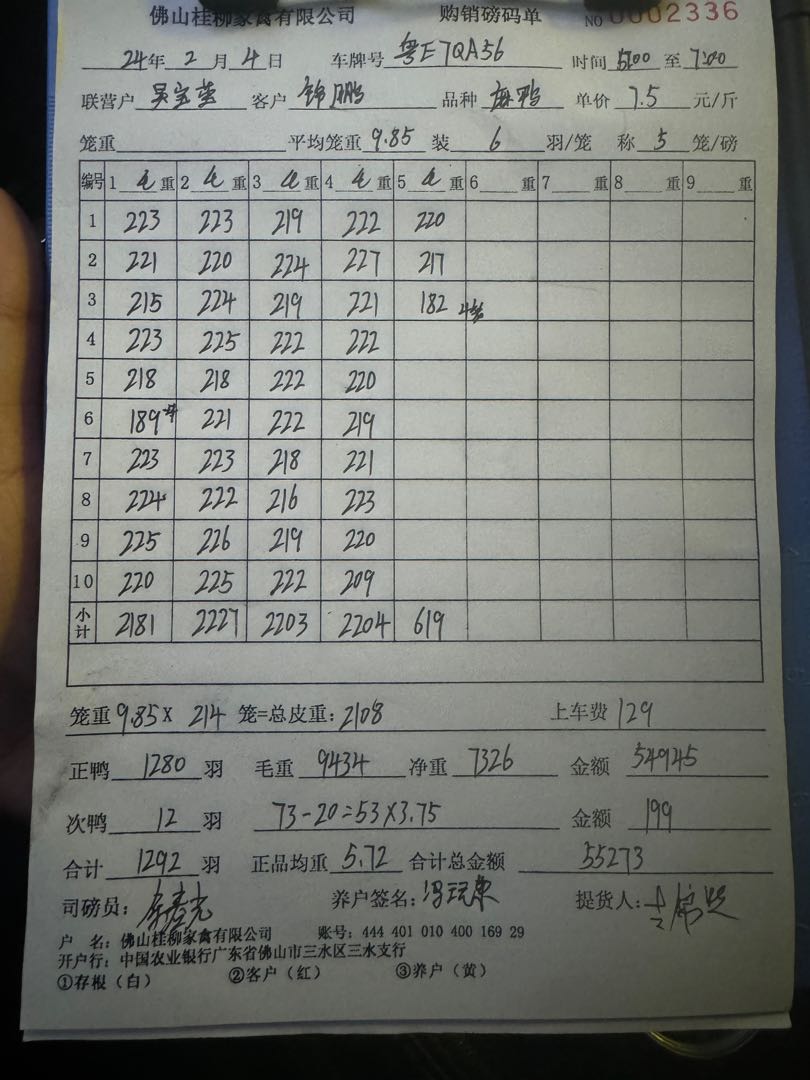 佛山桂柳家禽有限公司 购销磅码单 NO 0002336
24年 2月 4日 车牌号 粤E7QA56 时间 5:00 至 7:00
联营户 吴宝莹 客户 锦鹏 品种 麻鸭 单价 7.5 元/斤
笼重 平均笼重 9.85 装 6 羽/笼 称 5 笼/磅
编号 1 毛 重 2 毛 重 3 毛 重 4 毛 重 5 毛 重 6 重 7 重 8 重 9 重
1 223 223 219 222 220
2 221 220 224 227 217
3 215 224 219 221 182 4笼
4 223 225 222 222
5 218 218 222 220
6 189 221 222 219
7 223 223 218 221
8 224 222 216 223
9 225 226 219 220
10 220 225 222 209
小计 2181 2227 2203 2204 619
笼重 9.85 X 214 笼=总皮重: 2108 上车费 129
正鸭 1280 羽 毛重 9434 净重 7326 金额 54945
次鸭 12 羽 73-20=53X3.75 金额 199
合计 1292 羽 正品均重 5.72 合计总金额 55273
司磅员: 养户签名: 提货人:
户 名: 佛山桂柳家禽有限公司 账号: 444 401 010 400 169 29
开户行: 中国农业银行广东省佛山市三水区三水支行
①存根（白） ②客户（红） ③养户（黄）